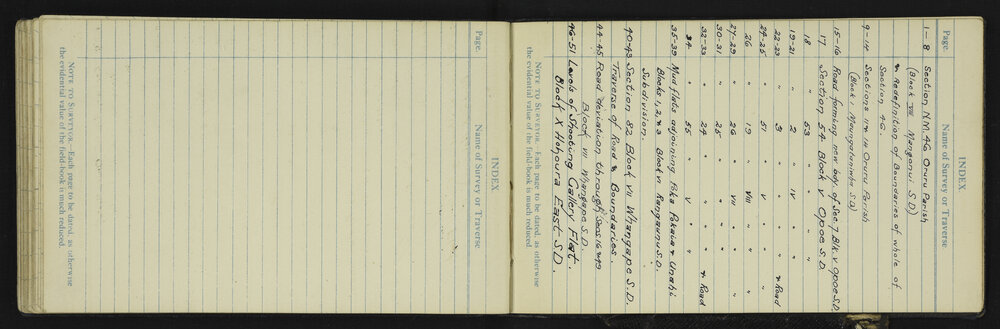 INDEX
Page. Name of Survey or Traverse
1-8 Section N.M. 46 Oruru Parish
(Block VIII Mangonui S.D)
& Redefinition of Boundaries of whole of
Section 46.
9-14 Sections 11 & 14 Oruru Parish
(Block 1. Maungataniwha S.D)
15-16 Road forming new bdy. of Sec. 7 Blk. V Opoe S.D.
17 Section 54 Block V Opoe S.D
18 " 53 " " "
19-21 " 2 " IV "
22-23 " 31 " " " & Road
24-25 " 51 " V "
26 " 19 " VIII "
27-29 " 26 " VII "
30-31 " 25 " " "
32-33 " 24 " " " & Road
34 " 55 " V "
35-39 Mud flats adjoining Pukepoto & Unahi
Blocks 1, 2, & 3 Block VI Rangaunu S.D.
Subdivision.
40-43 Section 82 Block VII Whangape S.D.
Traverse of Road & Boundaries.
44-45 Road deviation through Secs 16 & 49
Block VII Whangape S.D.
46-51 Levels of Shooting Gallery Flat.
Block X Hohoura East S.D.
NOTE TO SURVEYOR.—Each page to be dated, as otherwise
the evidential value of the field-book is much reduced.
INDEX
Page. Name of Survey or Traverse
NOTE TO SURVEYOR.—Each page to be dated, as otherwise
the evidential value of the field-book is much reduced.